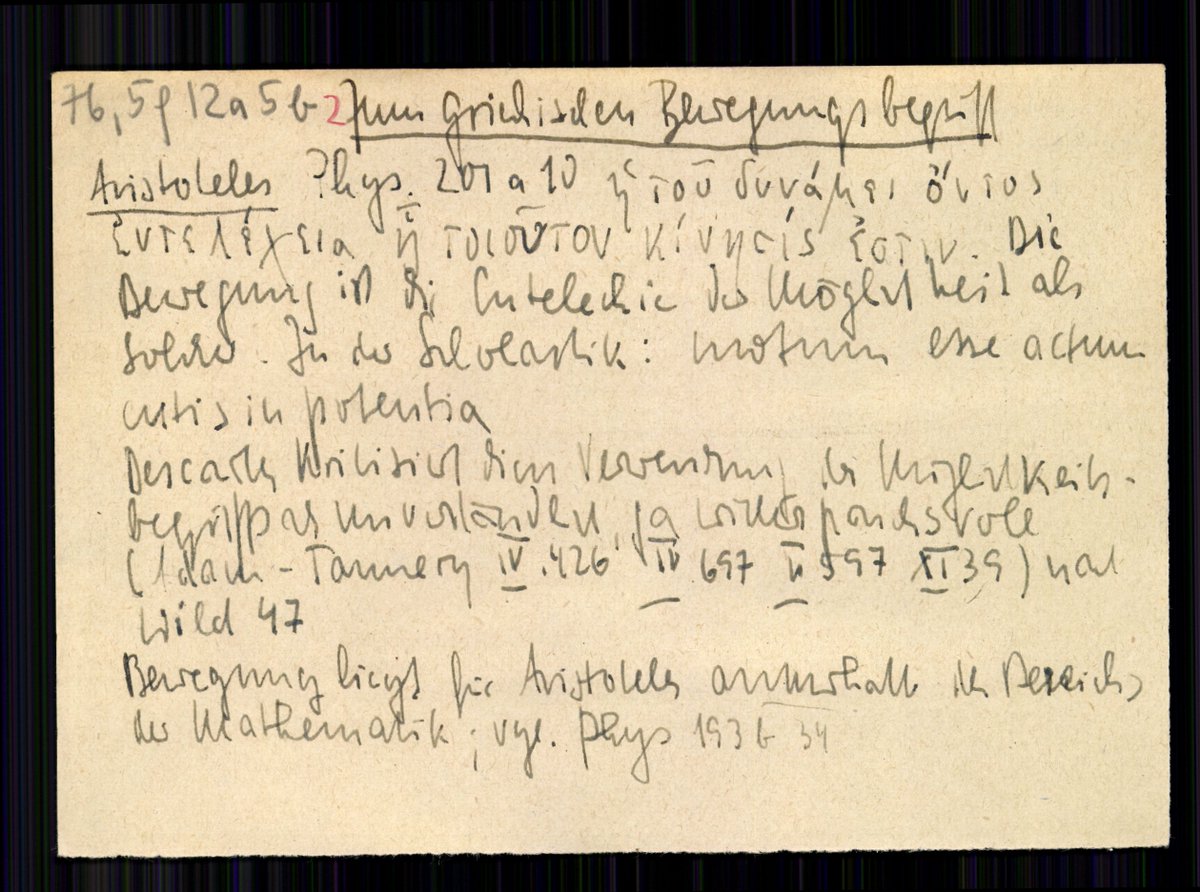 76,5f 12a5b 2 Zum griechischen Bewegungsbegriff
Aristoteles Phys. 201 a 10 ἡ τοῦ δυνάμει ὄντος
ἐντελέχεια ᾗ τοιοῦτον κίνησίς ἐστιν. Die
Bewegung ist die Entelechie der Möglichkeit als
solcher. In der Scholastik: motum esse actum
entis in potentia
Descartes kritisiert diese Verwendung des Möglichkeits-
begriffs als unverständlich, ja widerspruchsvoll
(Adam-Tannery IV. 426 IV 697 II 597 XI 39) nach
Wild 47
Bewegung liegt für Aristoteles ausserhalb des Bereichs
der Mathematik; vgl. Phys 193 b 34